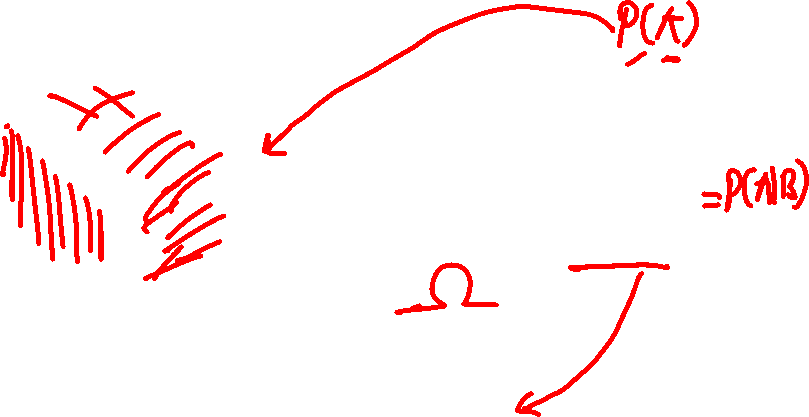 P(A)
=P(A|B)
Ω